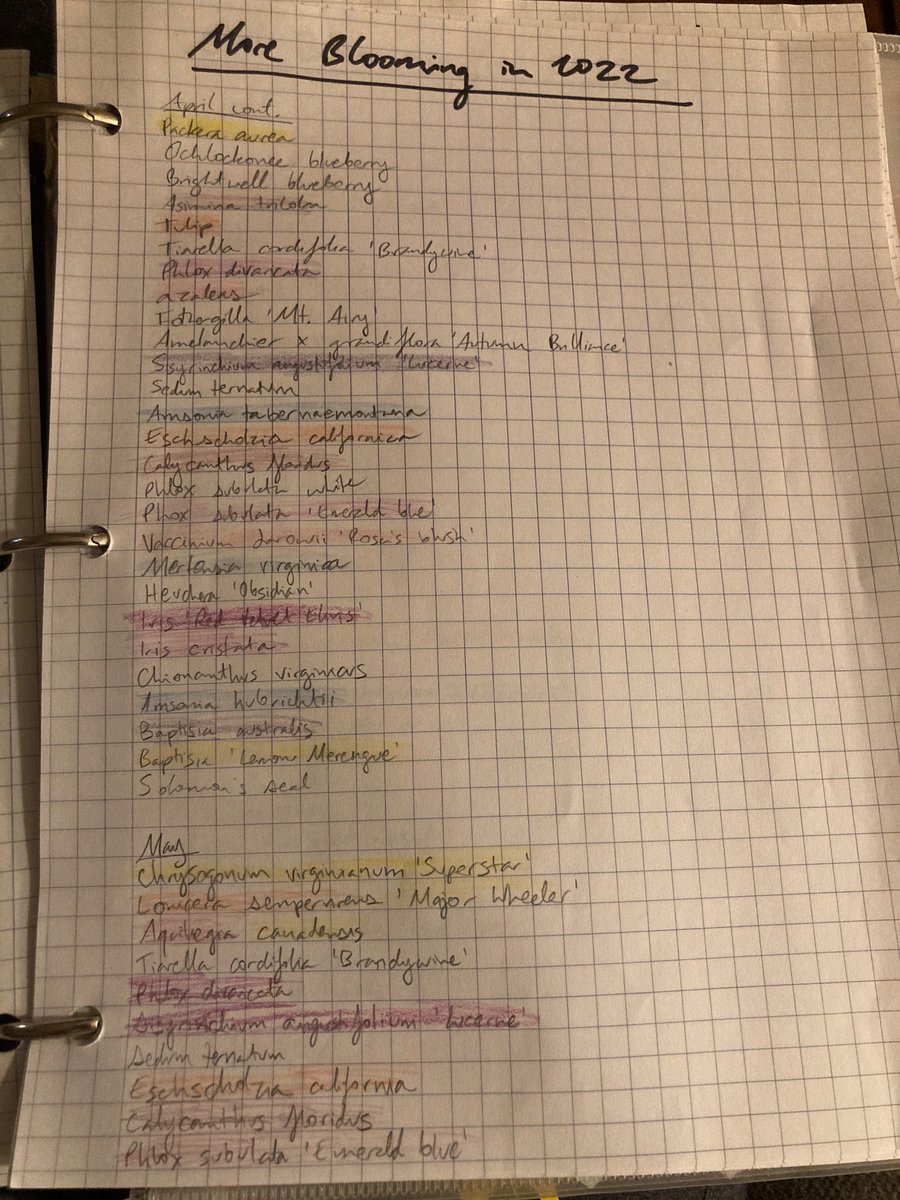 More Blooming in 2022
April cont.
Packera aurea
Ochlockonee blueberry
Brightwell blueberry
Asimina triloba
Tulip
Tiarella cordifolia 'Brandywine'
Phlox divaricata
azaleas
Fothergilla 'Mt. Airy
Amelanchier x grandiflora 'Autumn Brilliance'
Sisyrinchium angustifolium 'Lucerne'
Sedum ternatum
Amsonia tabernaemontana
Eschscholzia californica
Calycanthus floridus
Phlox subulata white
Phlox subulata 'Emerald blue'
Vaccinium darowii 'Rosa's blush'
Mertensia virginica
Heuchera 'Obsidian'
Iris 'Red Velvet Elvis'
Iris cristata
Chionanthus virginicus
Amsonia hubrichtii
Baptisia australis
Baptisia 'Lemon Merengue'
Solomon's seal
May
Chrysogonum virginianum 'Superstar'
Lonicera sempervirens 'Major Wheeler'
Aquilegia canadensis
Tiarella cordifolia 'Brandywine'
Phlox divaricata
Sisyrinchium angustifolium 'Lucerne'
Sedum ternatum
Eschscholzia california
Calycanthus floridus
Phlox subulata 'Emerald blue'